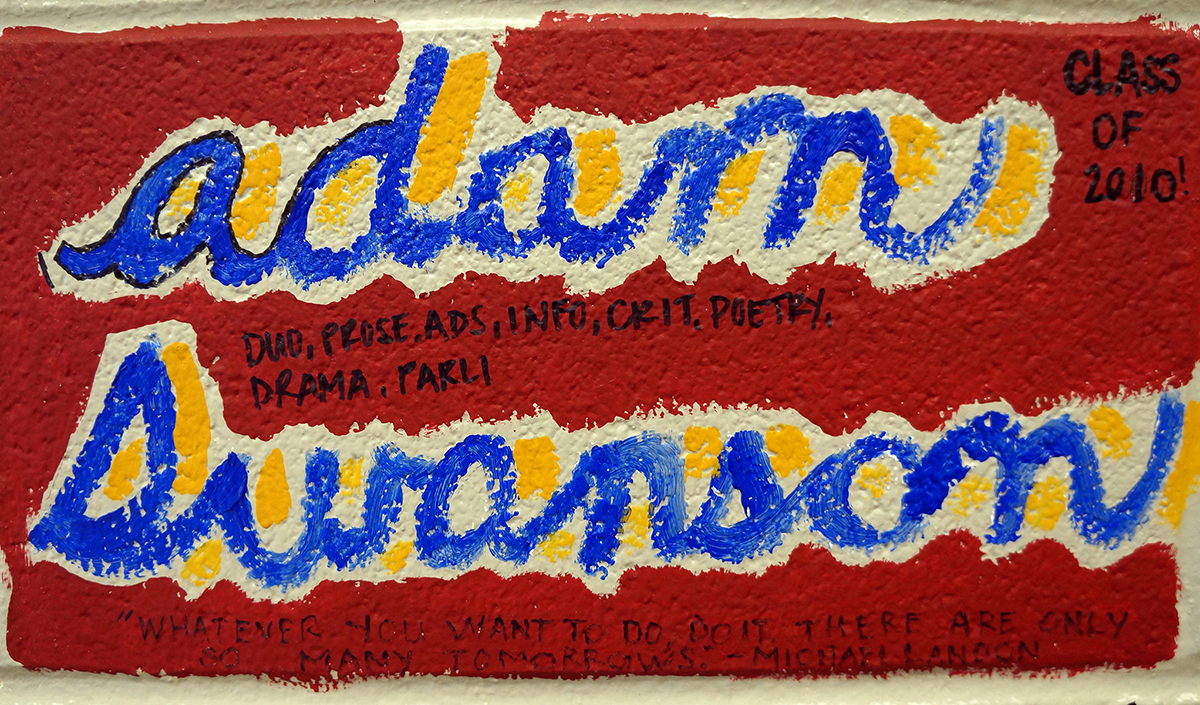 adam
CLASS
OF
2010!
DUO, PROSE, ADS, INFO, CRIT, POETRY,
DRAMA, PARLI
Swanson
"WHATEVER YOU WANT TO DO, DO IT. THERE ARE ONLY
SO MANY TOMORROWS." -MICHAEL LANDON